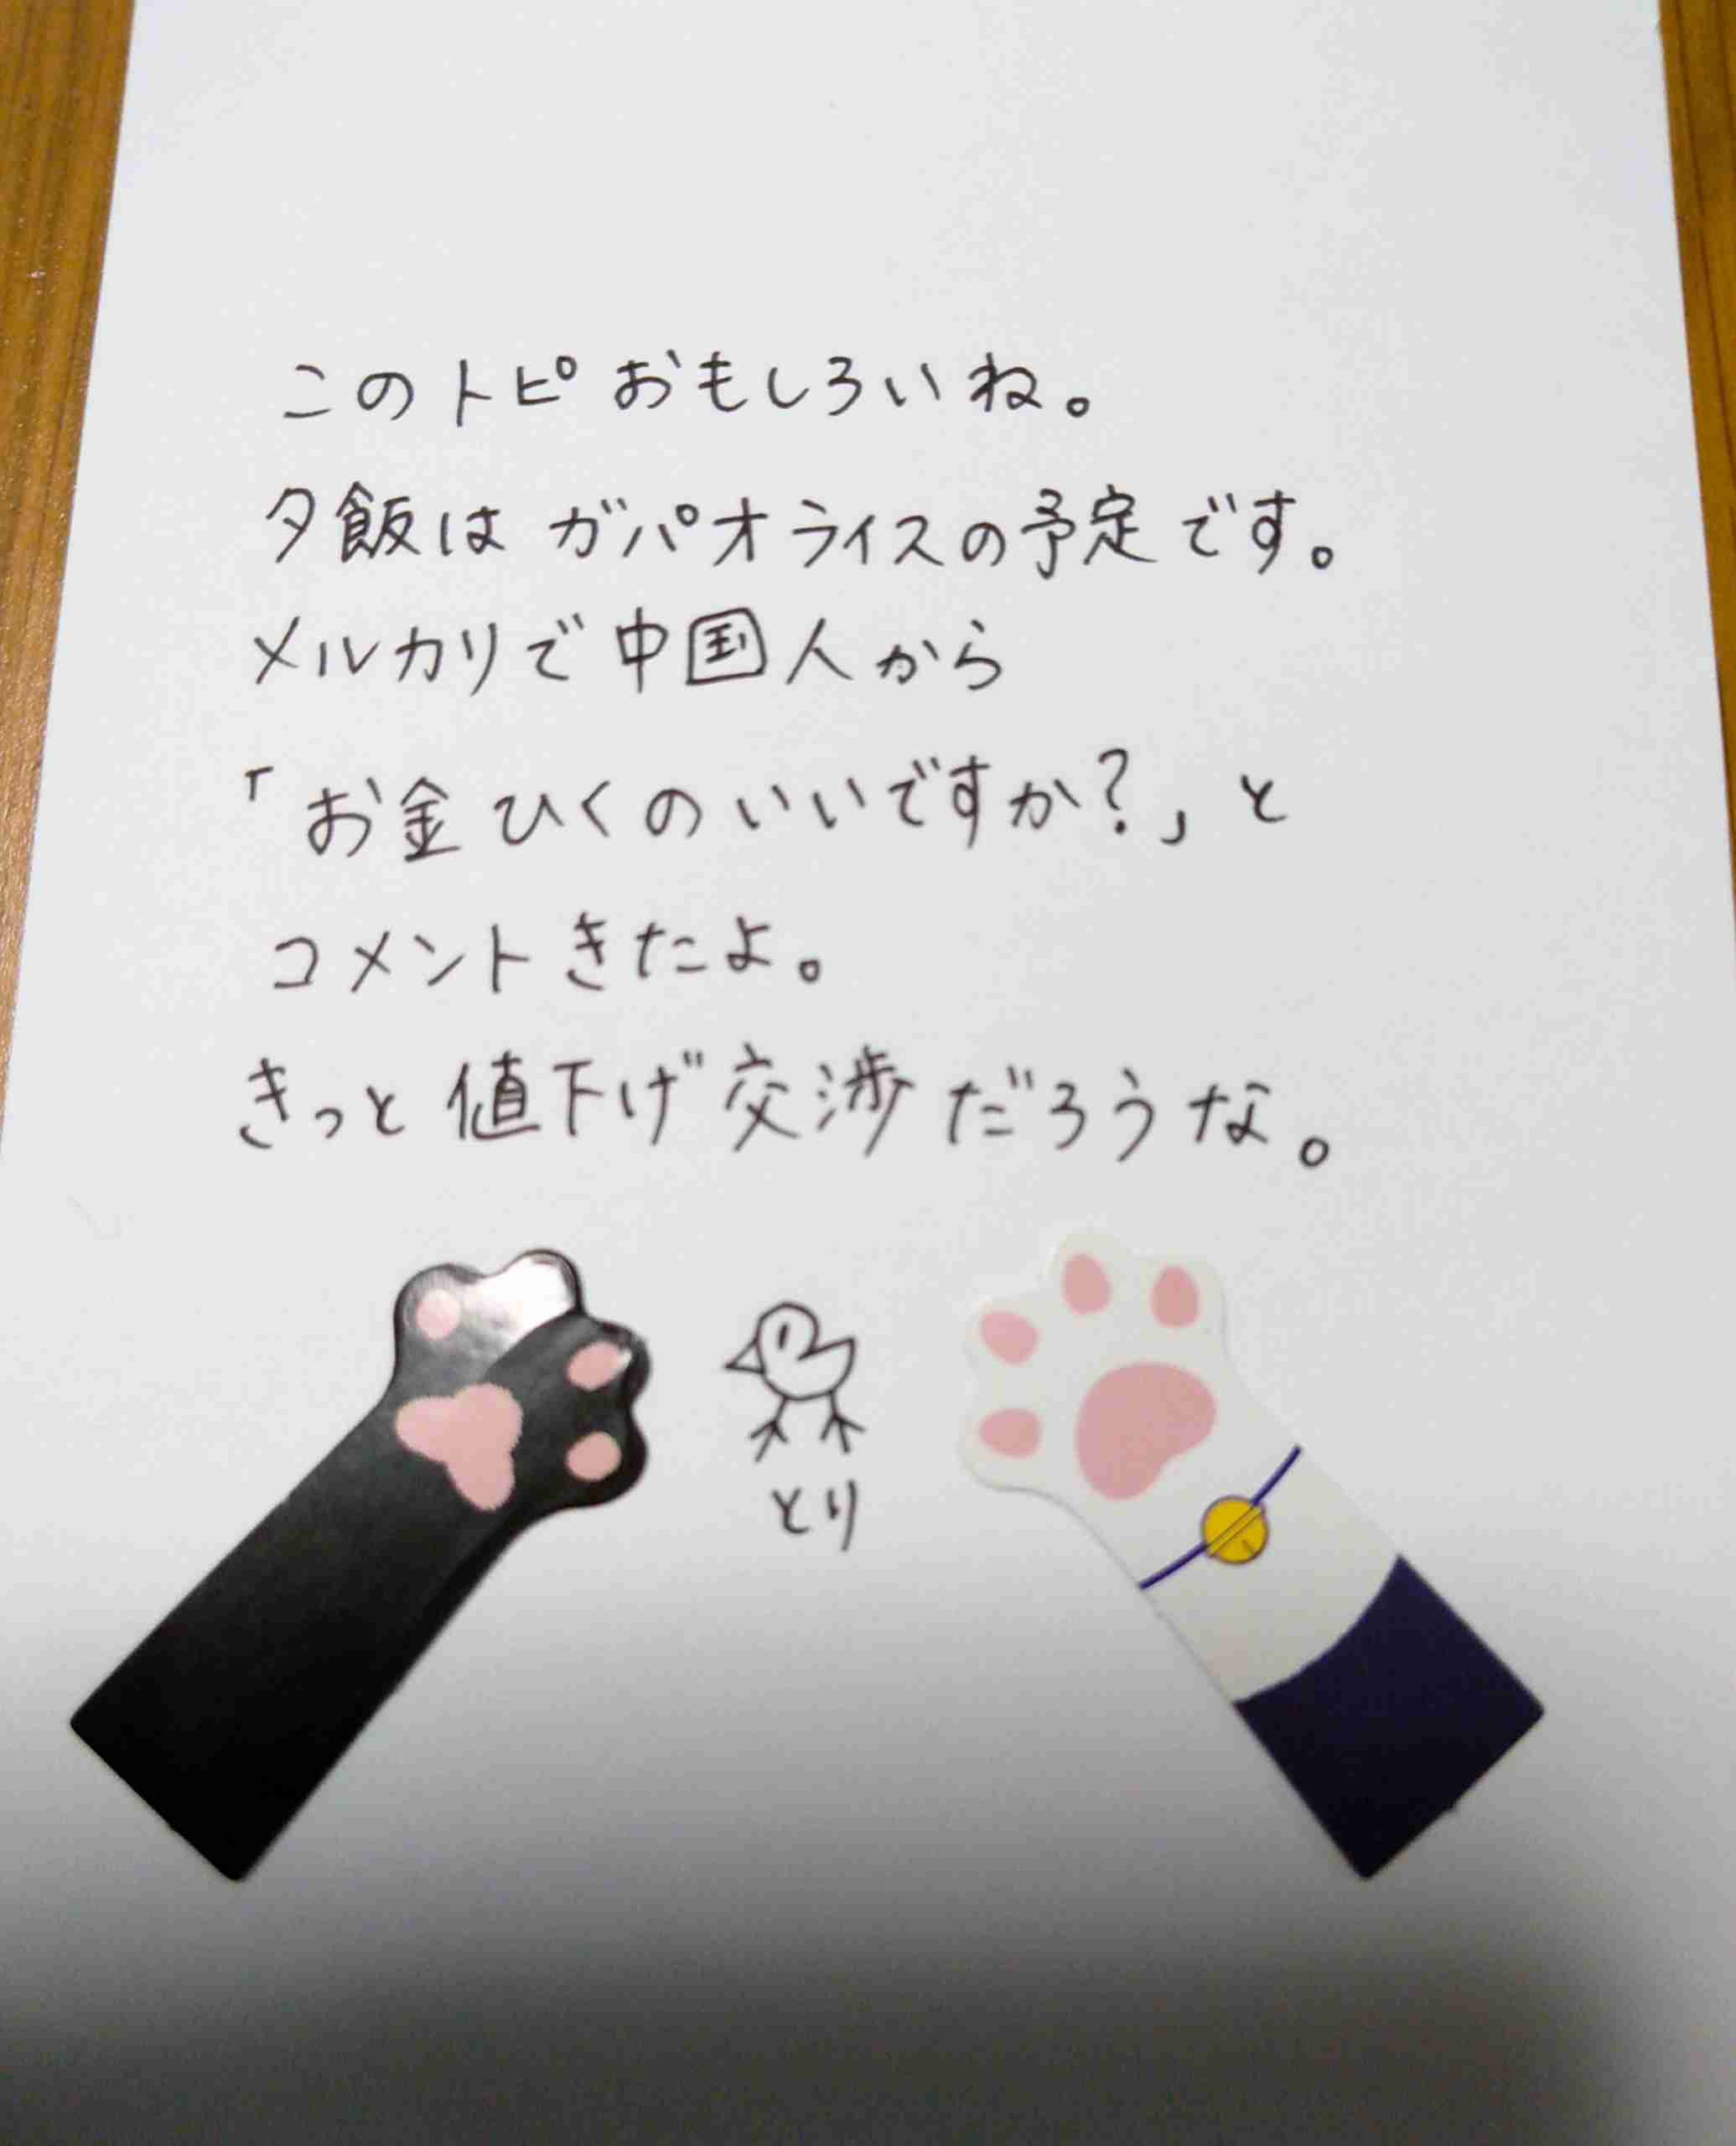 このトピおもしろいね。
夕飯はガパオライスの予定です。
メルカリで中国人から
「お金ひくのいいですか?」と
コメントきたよ。
きっと値下げ交渉だろうな。
とり